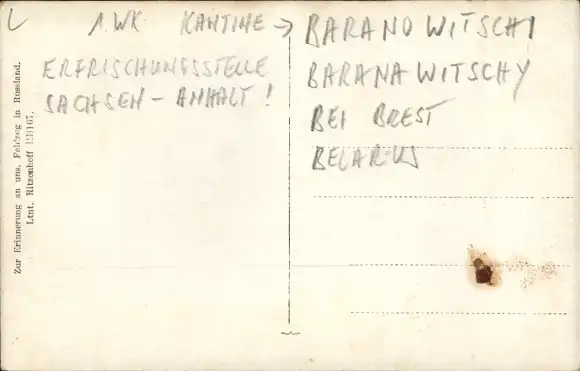 L 1.WK KANTINE → BARANOWITSCHI
ERFRISCHUNGSSTELLE
SACHSEN - ANHALT!
BARANAWITSCHY
BEI BREST
BELARUS
Zur Erinnerung an uns. Feldzug in Russland.
Ltnt. Ritzenhoff III/167.